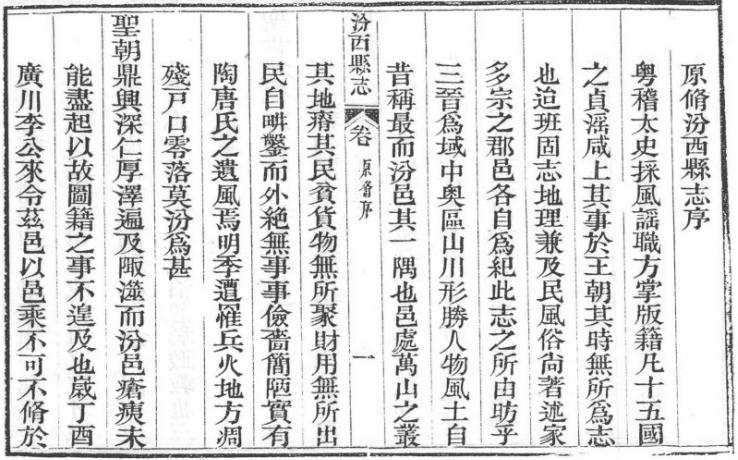 原脩汾西縣志序
粤稽太史採風謡職方掌版籍凡十五國
之貞滛咸上其事於王朝其時無所爲志
也迨班固志地理兼及民風俗尚著述家
多宗之郡邑各自爲紀此志之所由昉乎
三晉爲域中奥區山川形勝人物風土自
昔稱最而汾邑其一隅也邑處萬山之叢
汾西縣志 卷 原脩序 一
其地瘠其民貧貨物無所聚財用無所出
民自畊鑿而外絶無事事儉嗇簡陋實有
陶唐氏之遺風焉明季遭罹兵火地方凋
殘戸口零落莫汾爲甚
聖朝鼎興深仁厚澤遍及陬澨而汾邑瘡痍未
能盡起以故圖籍之事不遑及也歲丁酉
廣川李公來令茲邑以邑乘不可不脩於